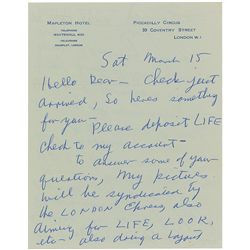 MAPLETON HOTEL
PICCADILLY CIRCUS
TELEPHONE
39 COVENTRY STREET
LONDON W.1
Sat March 15
Hello Dear - Check just
arrived, So heres something
for you -
Please deposit LIFE
Check to my account -
to answer some of your
questions, My pictures
will be syndicated by
the LONDON Express, also
Aiming for LIFE, LOOK,
etc - also doing a layout